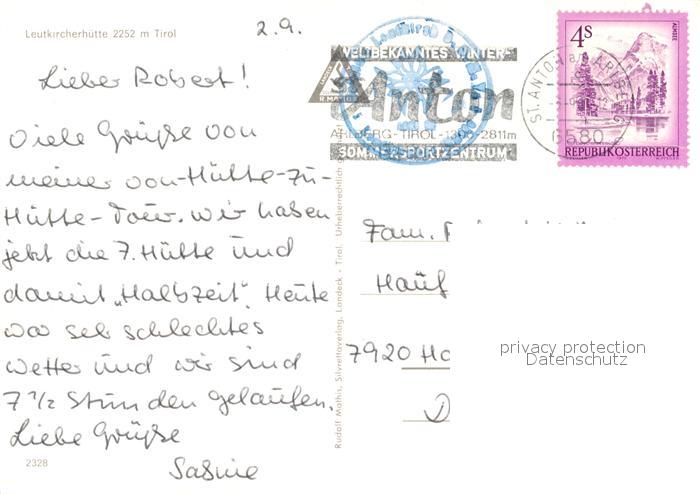 Leutkircherhütte 2252 m Tirol
2.9.
Lieber Robert!
Viele Grüße von
meiner von-Hütte-zu-
Hütte-Tour. Wir haben
jetzt die 7. Hütte und
damit „Halbzeit". Heute
war seh schlechtes
Wetter und wir sind
7 1/2 Stunden gelaufen.
Liebe Grüße
Sabine
2328
Rudolf Mathis, Silvrettaverlag, Landeck - Tirol. Urheberrechtlich
WELTBEKANNTES WINTER-
St Anton
ARLBERG-TIROL-1300-2811m
SOMMERSPORTZENTRUM
ST. ANTON a. ARLBERG
6580
4S
ALMSEE
REPUBLIK ÖSTERREICH
Fam.
Hauf
7920 He
D
privacy protection
Datenschutz